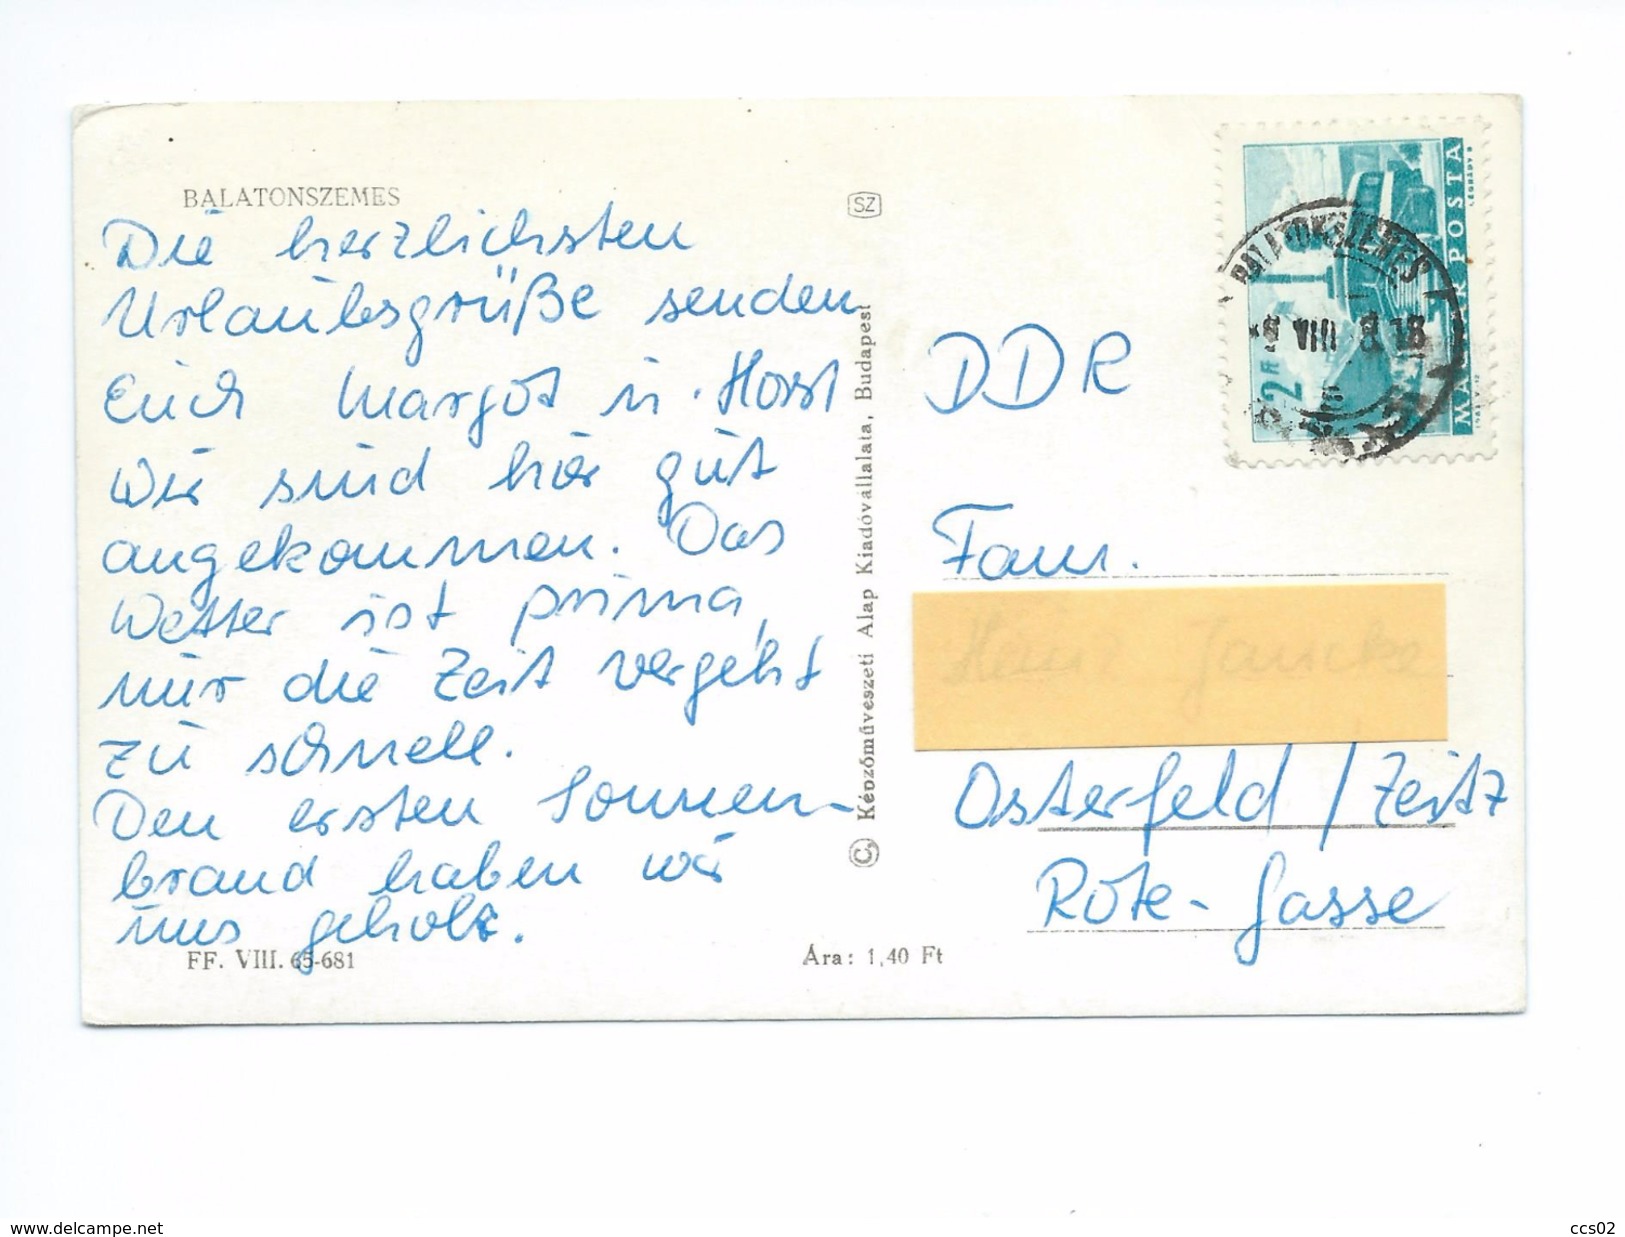 BALATONSZEMES
Die herzlichsten
Urlaubsgrüße senden
Euch Margot u. Horst
Wir sind hier gut
angekommen. Das
Wetter ist prima,
nur die Zeit vergeht
zu schnell.
Den ersten Sonnen-
brand haben wir
uns geholt.
FF. VIII. 65-681
SZ
© Képzőművészeti Alap Kiadóvállalata, Budapest
Ára: 1,40 Ft
MAGYAR POSTA
2 Ft
BALATONSZEMES
DDR
Fam.
Osterfeld / Zeitz
Rote-Gasse
www.delcampe.net
ccs02